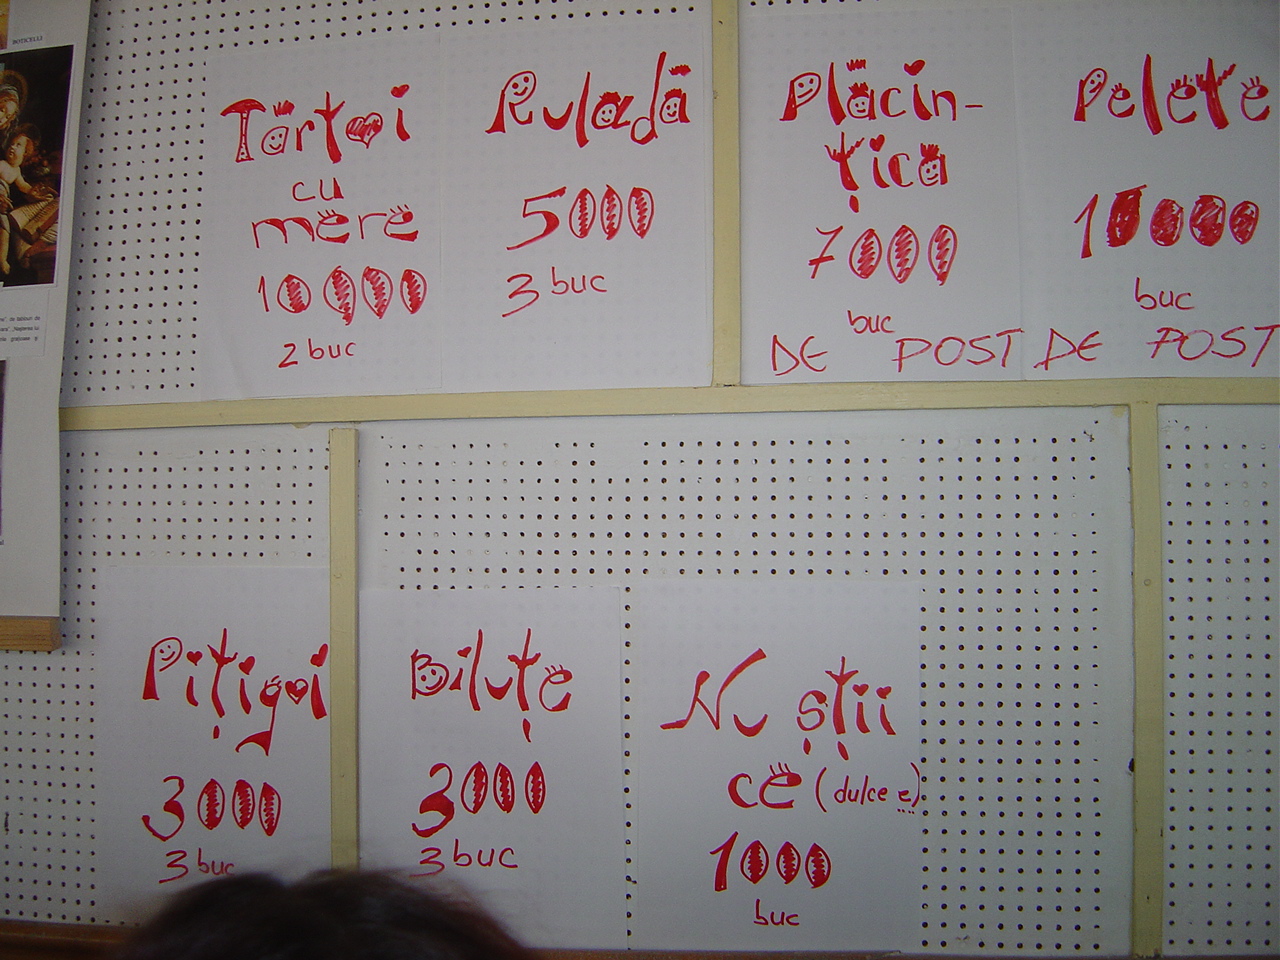 BOTICELLI
Tărtoi
cu
mere
10000
2 buc
Ruladă
5000
3 buc
Plăcin-
țica
7000
buc
DE POST
Pelete
10000
buc
DE POST
Pițigoi
3000
3 buc
Biluțe
3000
3 buc
Nu știi
ce (dulce e)
1000
buc